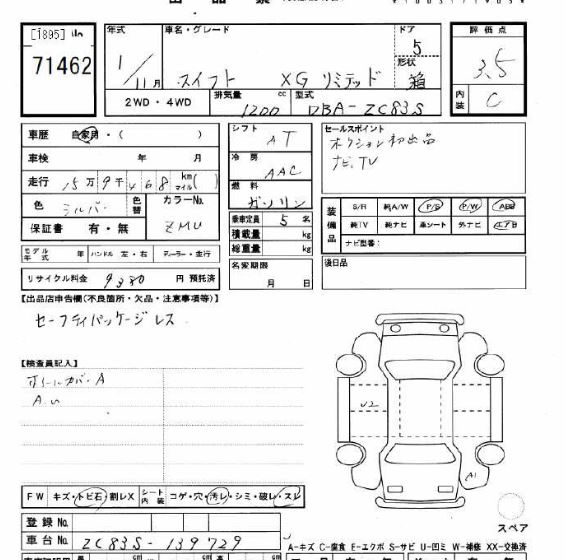 [1895] iln
71462
年式
1/11月
車名・グレード
スイフト XGリミテッド
ドア
5
形状
箱
評価点
3.5
内装
C
2WD・4WD
排気量
1200 cc
型式
DBA-ZC83S
車歴 自家用・( )
車検 年 月
走行 15万9千468 km マイル( )
色 シルバー
色替
カラーNo.
ZMU
保証書 有・無
シフト
AT
冷房
AAC
燃料
ガソリン
乗車定員 5 名
積載量 kg
総重量 kg
セールスポイント
オークション初出品
ナビ、TV
装備品
S/R 純A/W P/S P/W ABS
純TV 純ナビ 革シート 外ナビ エアB
ナビ型番:
モデル年式 年 ハンドル 左・右 ディーラー・並行
リサイクル料金 9330 円 預託済
名変期限
月 日
後日品
【出品店申告欄(不良箇所・欠品・注意事項等)】
セーフティパッケージレス
【検査員記入】
ホイールカバーA
A.U
U2
A1
スペア
FW キズ・トビ石・割レX シート内装 コゲ・穴・汚レ・シミ・破レ・スレ
登録No.
車台No. ZC83S-139729
A-キズ C-腐食 E-エクボ S-サビ U-凹ミ W-補修 XX-交換済